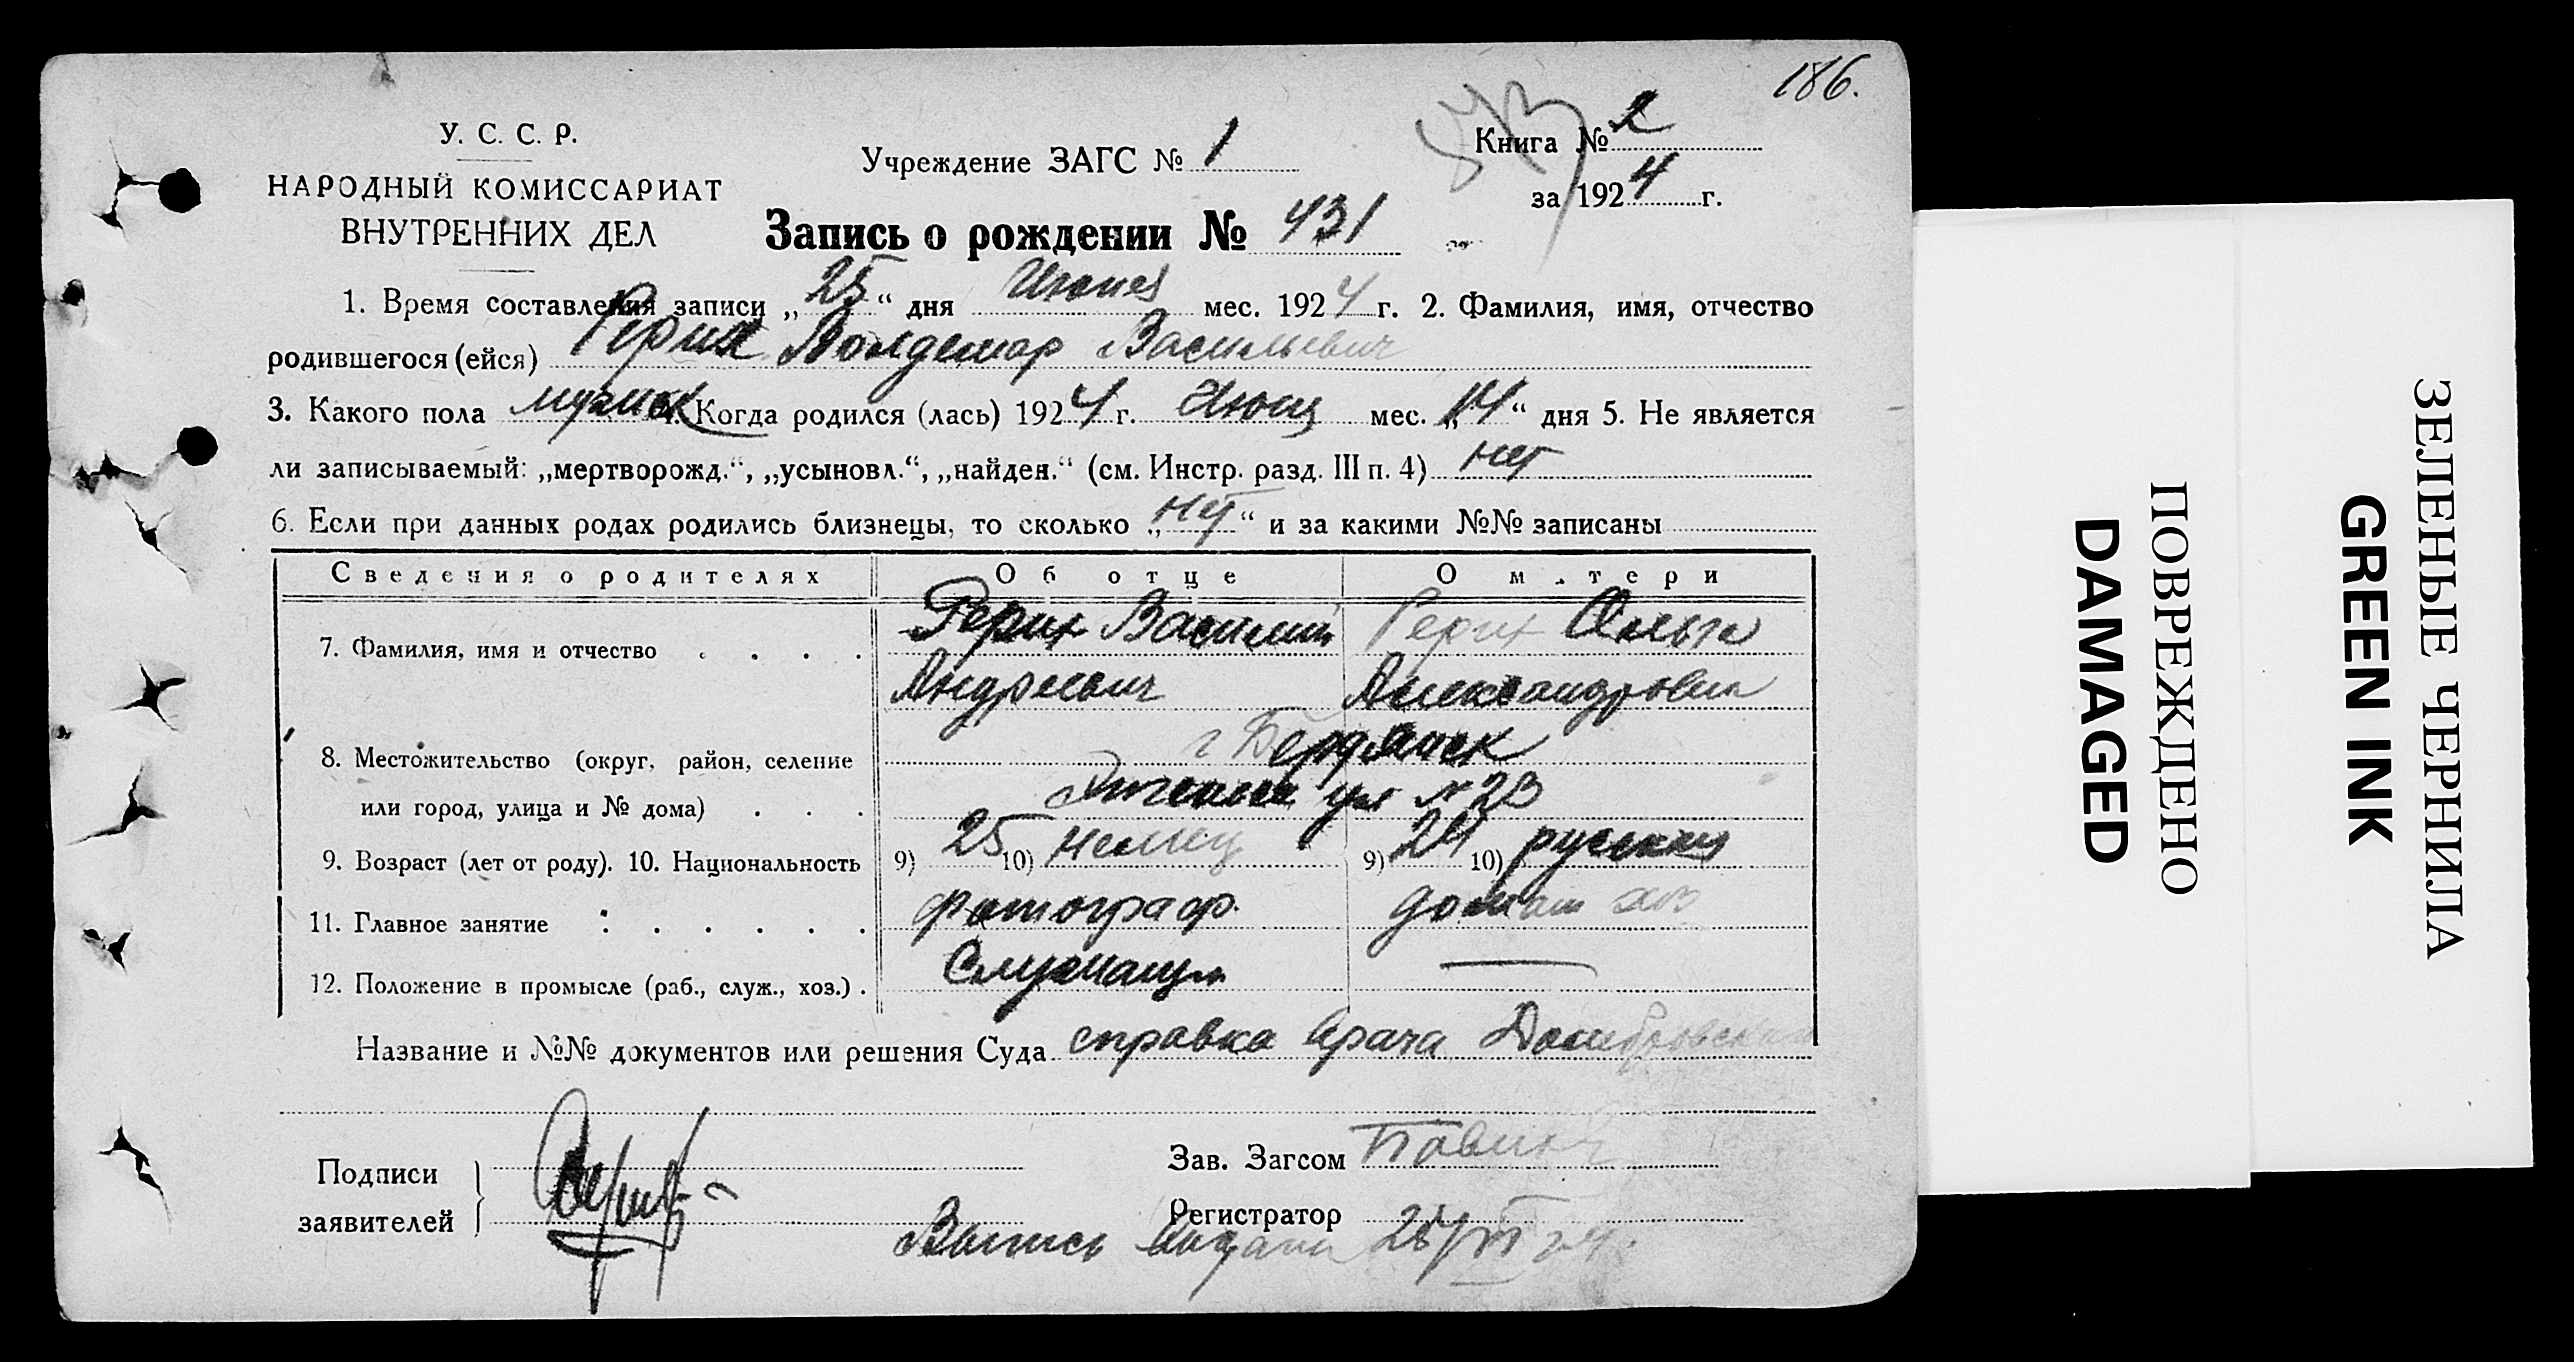 186.
У. С. С. Р.
НАРОДНЫЙ КОМИССАРИАТ
ВНУТРЕННИХ ДЕЛ
Учреждение ЗАГС № 1
Книга № 2
за 1924 г.
Запись о рождении № 431
1. Время составления записи „25“ дня Июня мес. 1924 г. 2. Фамилия, имя, отчество
родившегося (ейся) Рерих Волдемар Васильевич
3. Какого пола мужск 4. Когда родился (лась) 1924 г. Июня мес. „14“ дня 5. Не является
ли записываемый: „мертворожд.“, „усыновл.“, „найден.“ (см. Инстр. разд. III п. 4) нет
6. Если при данных родах родились близнецы, то сколько „нет“ и за какими №№ записаны
Сведения о родителях Об отце О м.тери
7. Фамилия, имя и отчество Рерих Василий Рерих Ольга
Андреевич Александровна
8. Местожительство (округ, район, селение г Бердянск
или город, улица и № дома) ул № 23
9. Возраст (лет от роду). 10. Национальность 9) 25 10) немец 9) 24 10) русская
11. Главное занятие фотограф. домаш хоз
12. Положение в промысле (раб., служ., хоз.) Служащий —
Название и №№ документов или решения Суда справка врача Домбровского
Подписи
заявителей
Зав. Загсом
Регистратор
Выпись выдана
ПОВРЕЖДЕНО
DAMAGED
ЗЕЛЕНЫЕ ЧЕРНИЛА
GREEN INK